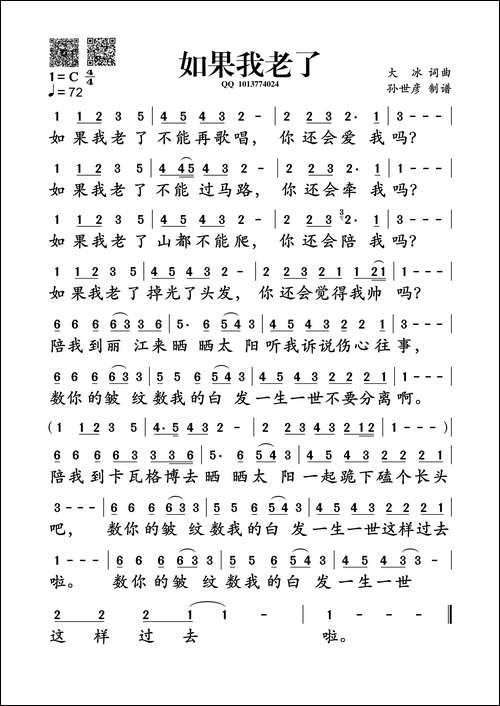 如果我老了
QQ 1013774024
1=C 4/4
♩=72
大 冰 词曲
孙世彦 制谱
1 1 2 3 5 | 4 5 4 3 2 - | 2 2 3 2· 1 | 3 - - - |
如 果我老 了 不能再歌唱， 你 还会爱 我 吗?
1 1 2 3 5 | 4 45 4 3 2 - | 2 2 3 2· 1 | 3 - - - |
如 果我老 了 不能 过马路， 你 还会牵 我 吗?
1 1 2 3 5 | 4 5 4 3 2 - | 2 2 3 3 2· 1 | 3 - - - |
如 果我老 了 山都不能爬， 你 还会陪 我 吗?
1 1 2 3 5 | 4 5 4 3 2 - | 2 2 3 2 2 1 21 | 1 - - - |
如 果我老 了 掉光了头发， 你 还会觉得我帅 吗?
6 6 6 6 6 3 3 | 5· 6 5 4 3 | 2 3 4 3 2 1 2 2 | 3 - - - |
陪 我 到 丽 江来 晒 晒太 阳 听我诉说伤心 往 事，
6 6 6 6 6 3 3 | 5· 6 5 4 3 | 4 5 4 3 2 2 2 1 | 1 - - - |
数你 的 皱 纹数我的 白 发一生一世不要分离啊。
( 1 1 2 3 5 | 4· 5 4 3 2 - | 2 2 3 4 3 2 12 | 1 - - - )
6 6 6 6 6 3 3 6 | 5· 6 5 4 3 | 2 3 4 3 2 1 2 2 |
陪我 到 卡 瓦格 博去 晒 晒太 阳 一起跪下磕个长头
3 - - - | 6 6 6 6 6 3 3 | 5· 6 5 4 3 | 4 5 4 3 2 2 2 1 |
吧， 数你 的 皱 纹 数我的 白 发 一生一世这样过去
1 - - - | 6 6 6 6 6 3 3 | 5· 6 5 4 3 | 4 5 4 3 |
啦。 数你 的 皱 纹 数我的 白 发 一生一世
2 2 | 2 2 1 1 - | 1 - - - ‖
这 样 过 去 啦。